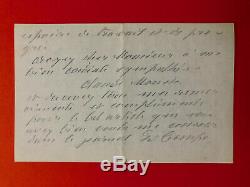 espoir de travail et de pro
grès
croyez cher Monsieur à mes
bien cordiale sympathie
Claude Monet
et recevez tous mes remer
ciements et compliments
pour le bel article que vous
avez bien voulu me consacrer
dans le journal Le Temps